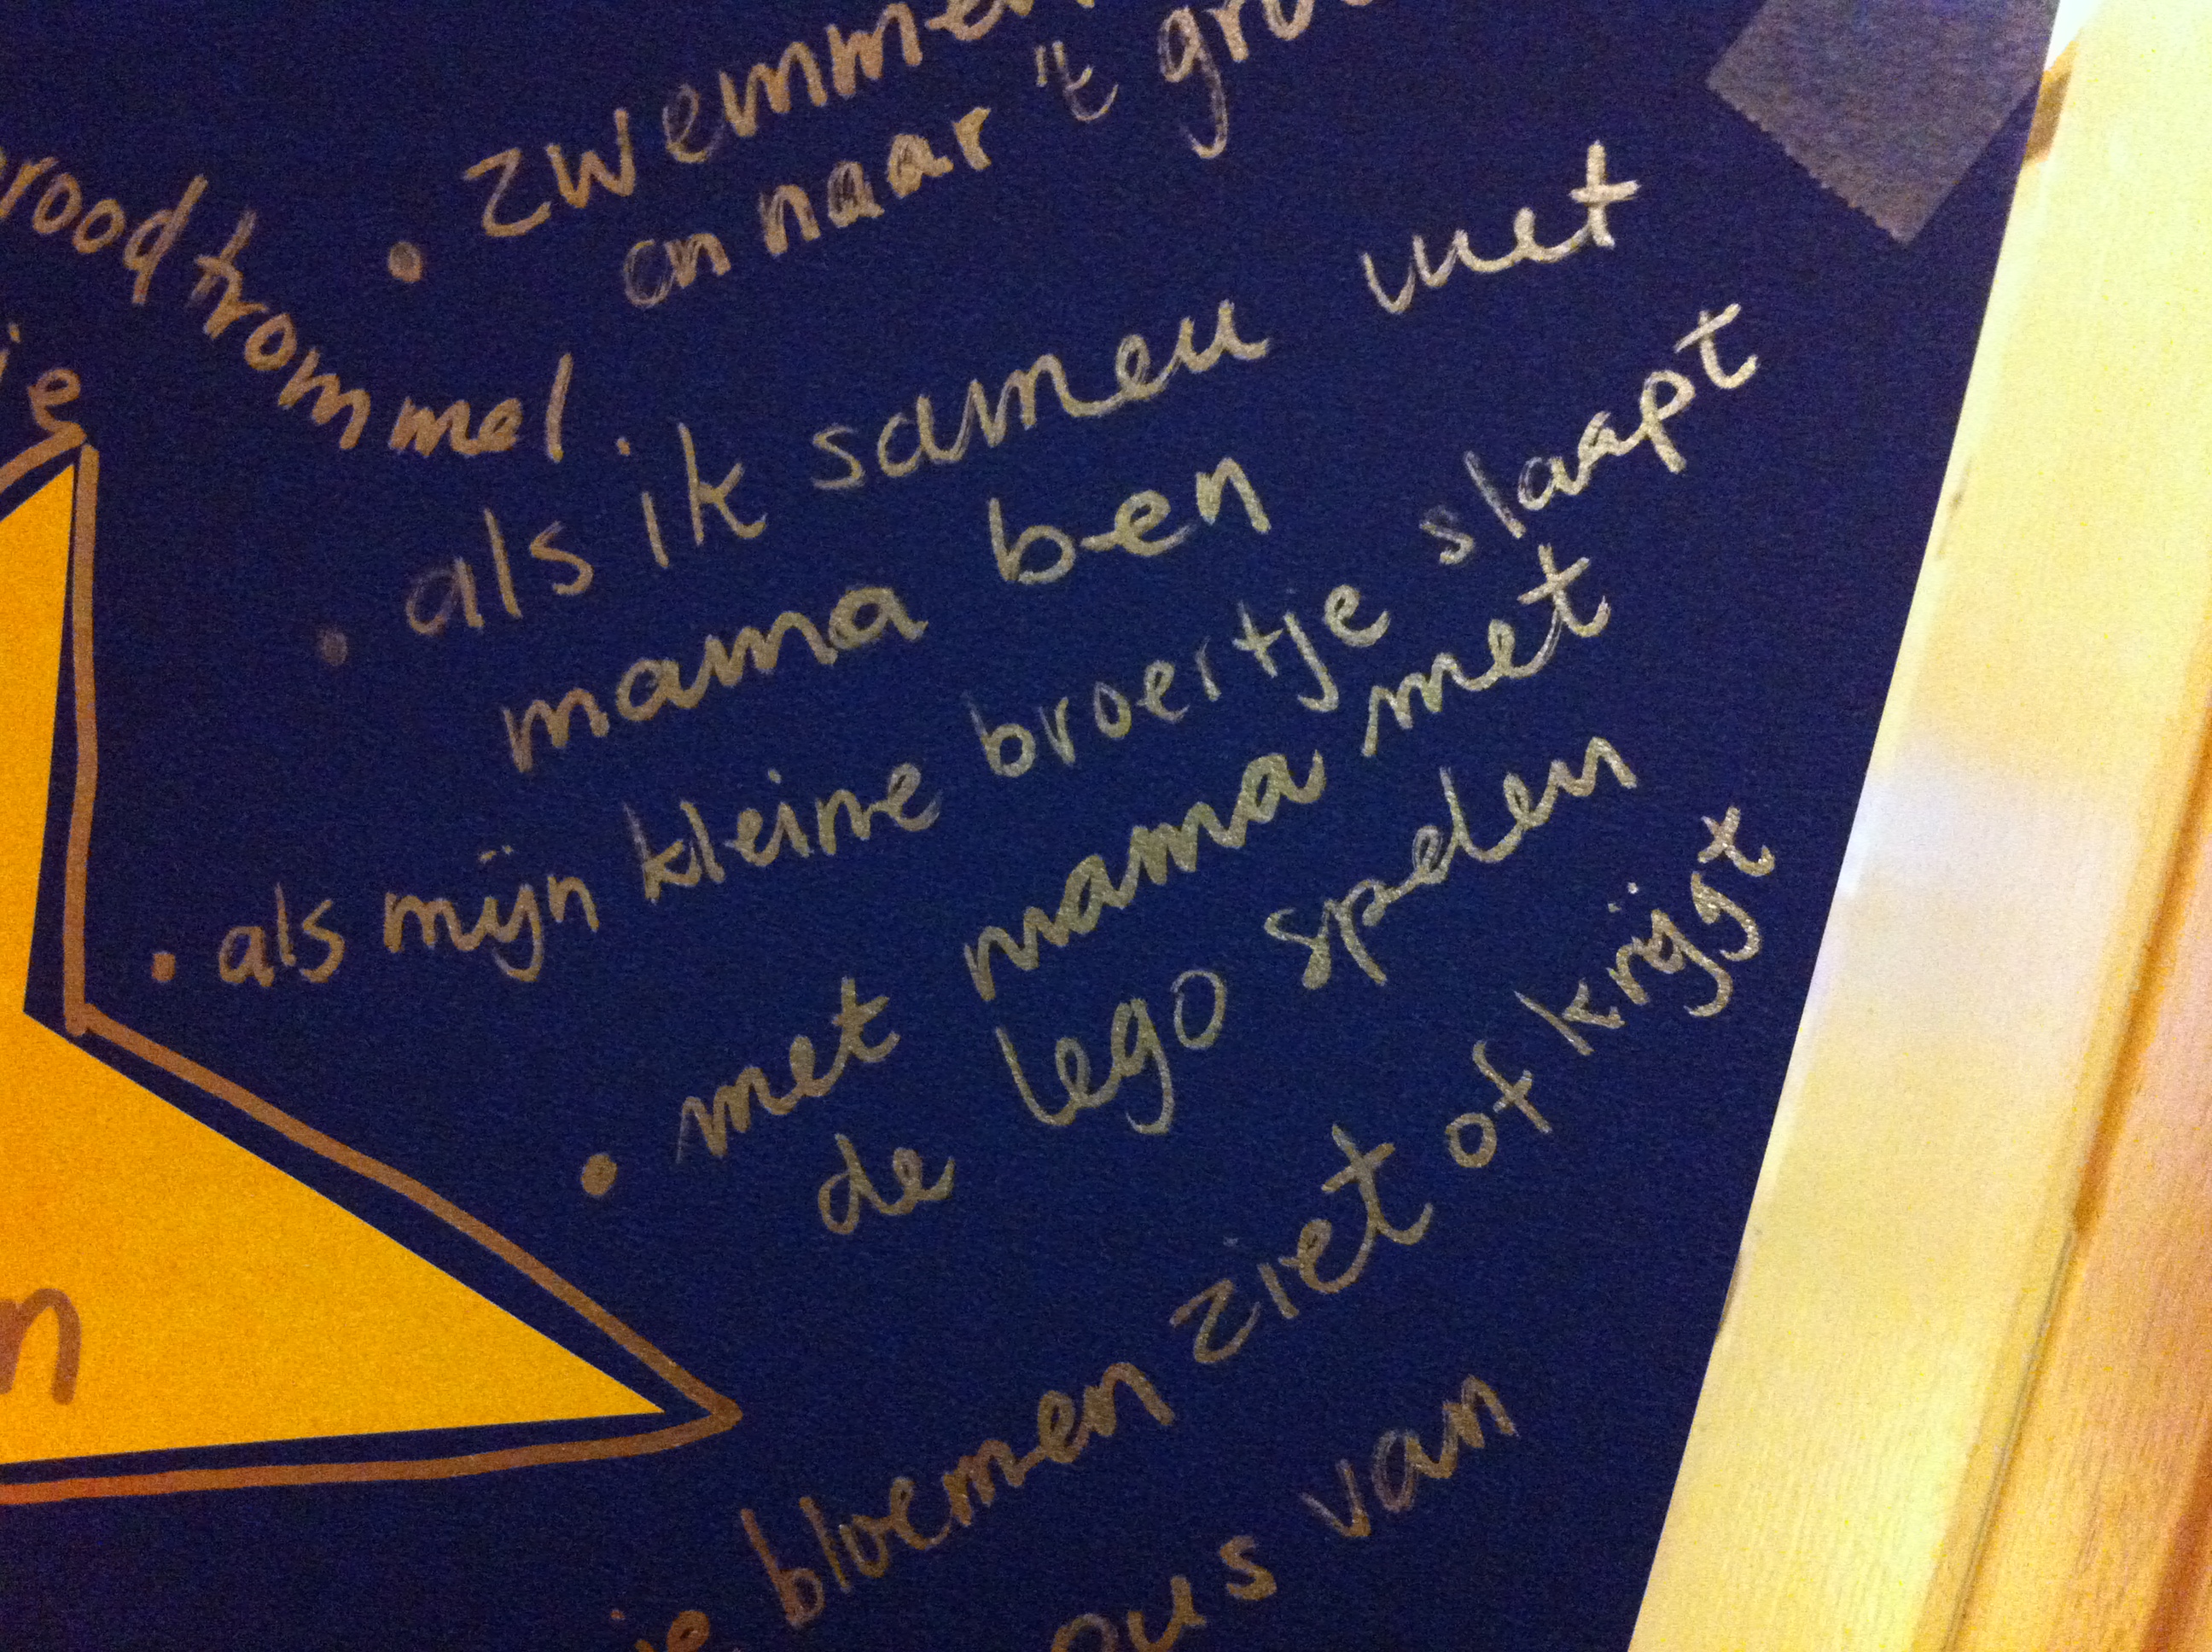 zwemmen
en naar 't
roodtrommel.
je
• als ik samen met
mama ben
• als mijn kleine broertje slaapt
• met mama met
de lego spelen
n
je bloemen ziet of krijgt
ous van